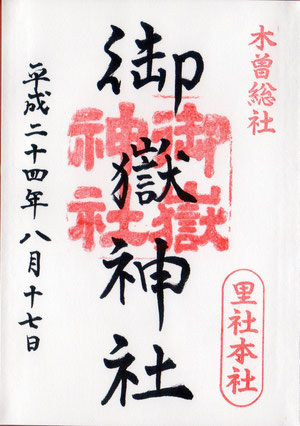 木曽総社
里社本社
御嶽神社
御嶽
神社
平成二十四年八月十七日